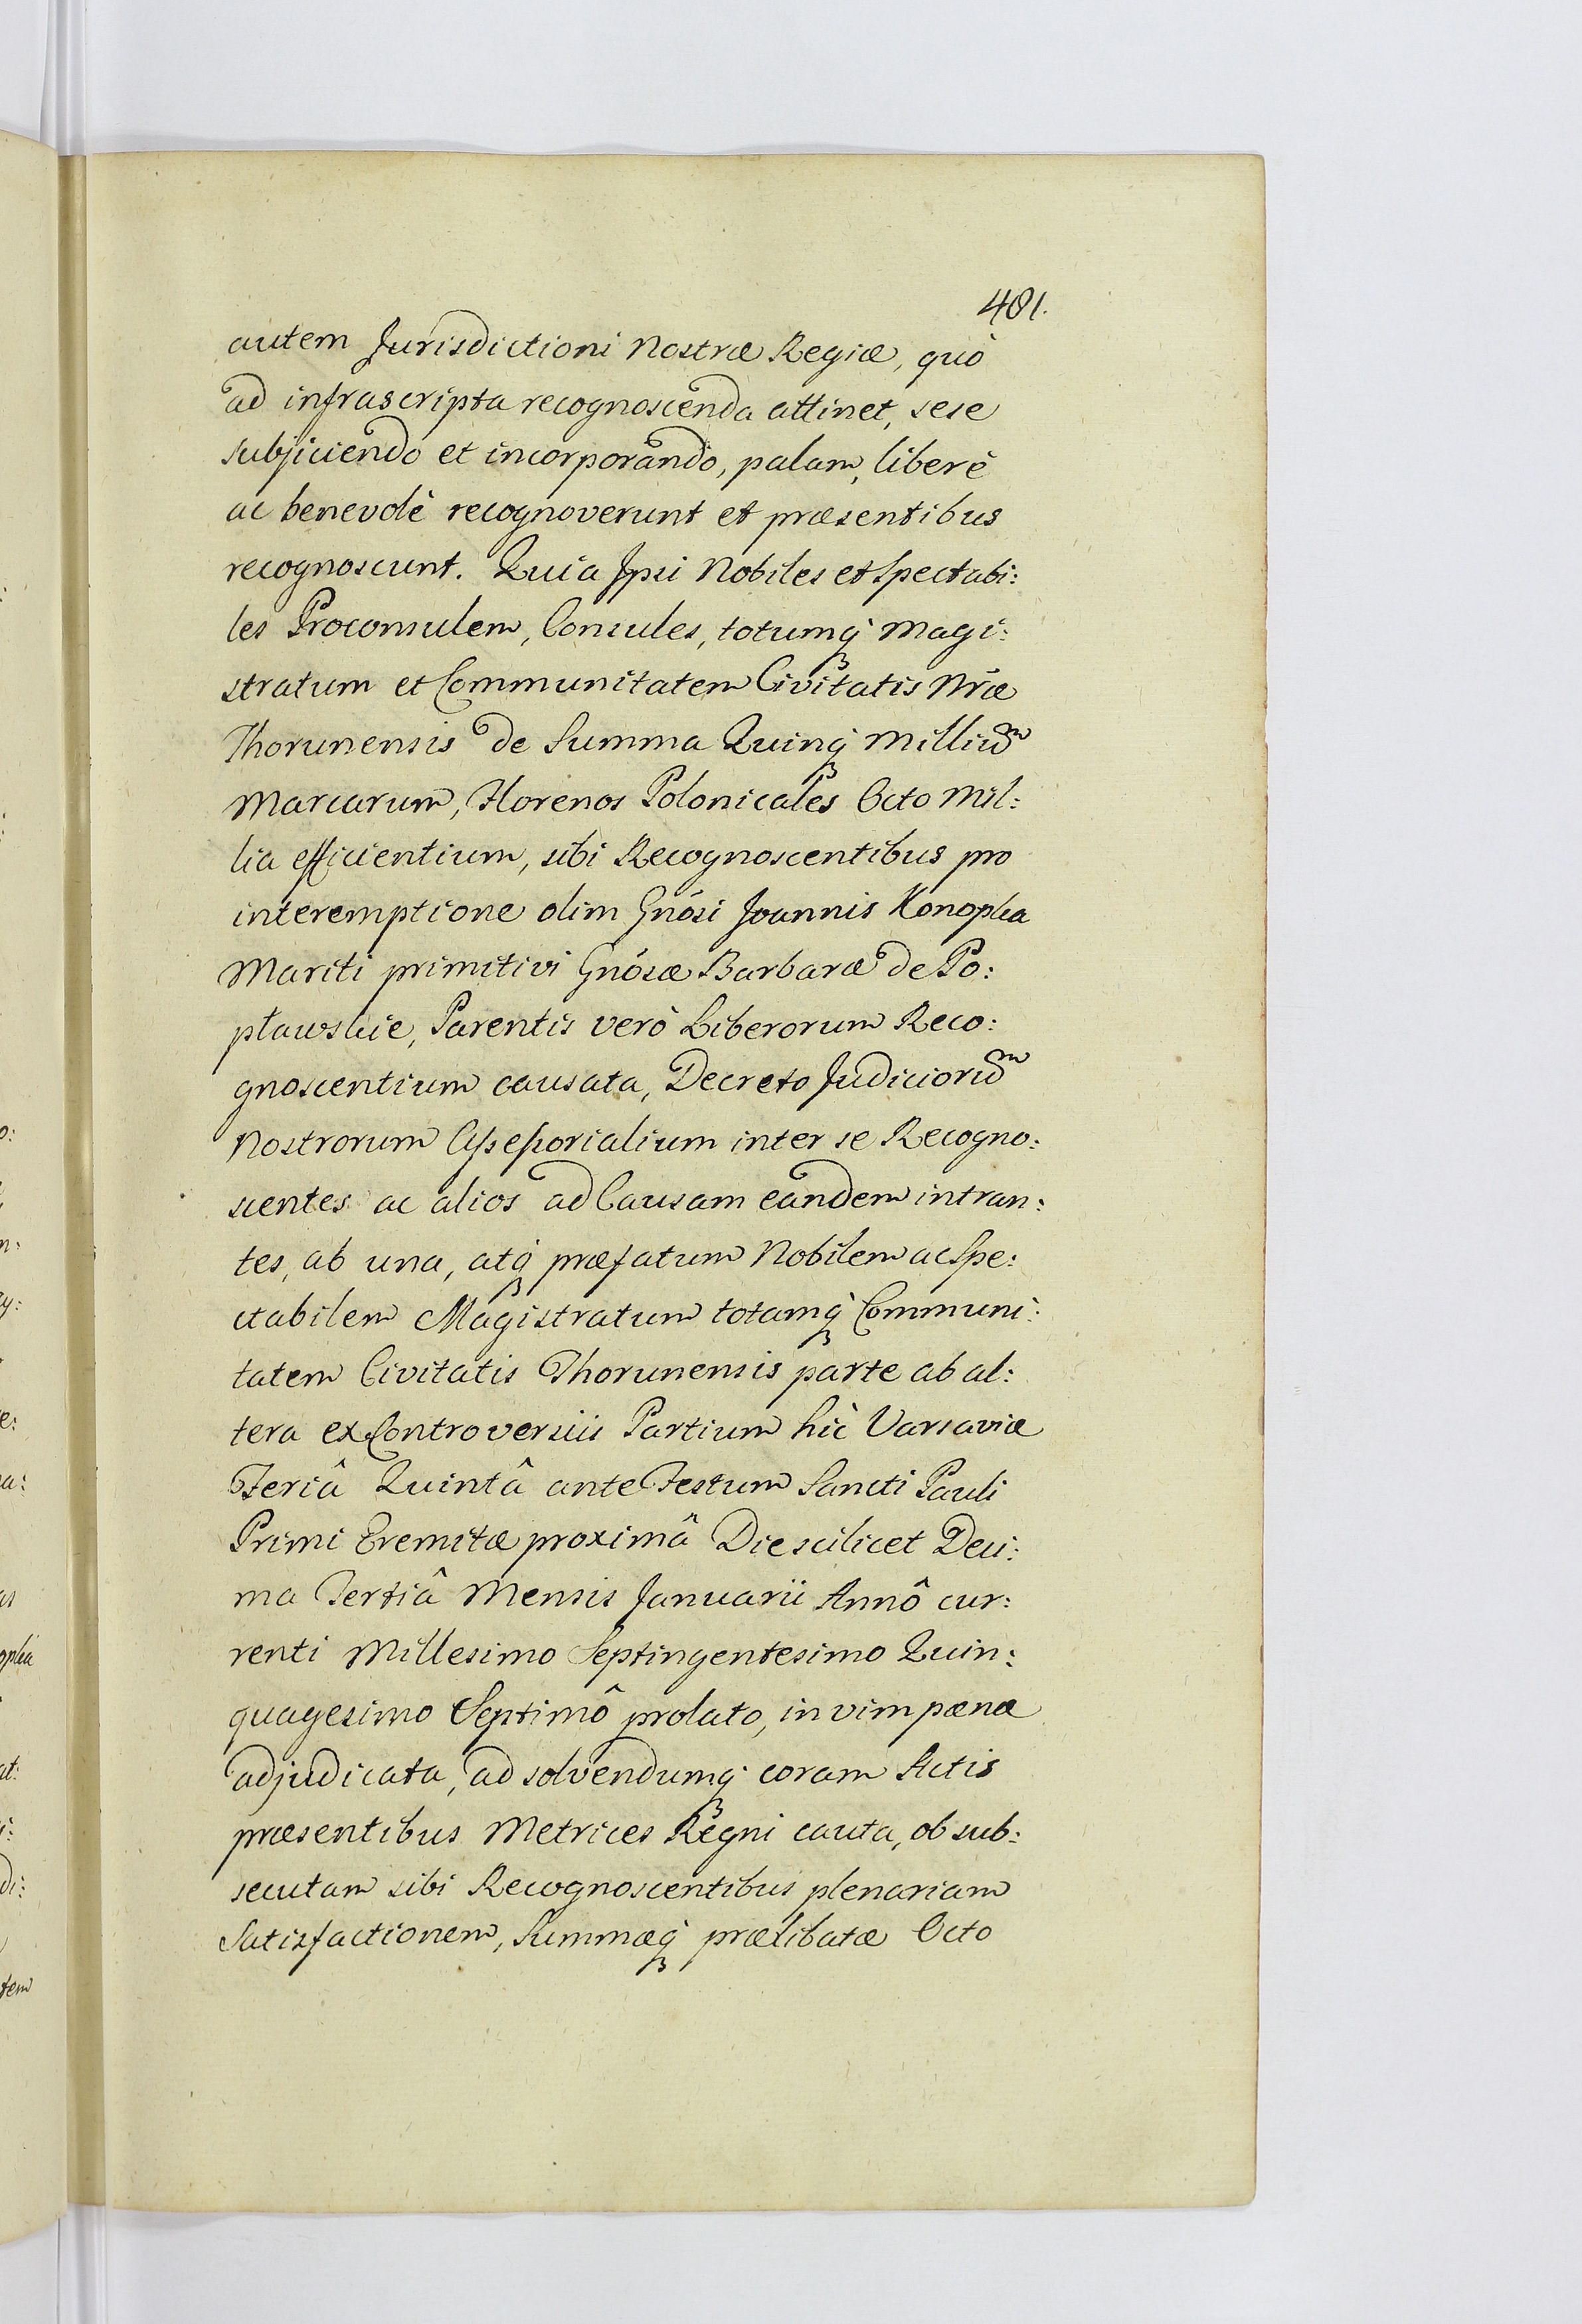 481.
autem Jurisdictioni Nostræ Regiæ, quò
ad infrascripta recognoscenda attinet, sese
subjiciendo et incorporando, palam, liberè
ac benevolè recognoverunt et præsentibus
recognoscunt. Quia Ipsi Nobiles et Spectabi:
les Proconsulem, Consules, totumq́ꝫ Magi:
stratum et Communitatem Civitatis Nræ
Thorunensis de Summa Quinq́ꝫ Millium
Marcarum, Florenos Polonicales Octo Mil:
lia efficientium, sibi Recognoscentibus pro
interemptione olim Gnósi Joannis Konopka
Mariti primitivi Gnósæ Barbaræ de Po:
pławskie, Parentis verò Liberorum Reco:
gnoscentium causata, Decreto Judiciorum
Nostrorum Assessorialium inter se Recogno:
scentes ac alios ad Causam eandem intran:
tes, ab una, atq́ꝫ præfatum Nobilem ac Spe:
ctabilem Magistratum totamq́ꝫ Communi:
tatem Civitatis Thorunensis parte ab al:
tera ex Controversiis Partium hìc Varsaviæ
Feriâ Quintâ ante Festum Sancti Pauli
Primi Eremitæ proximâ Die scilicet Deci:
ma Tertiâ Mensis Januarii Annô cur:
renti Millesimo Septingentesimo Quin:
quagesimo Septimô prolato, in vim pænæ
adjudicata, ad solvendumq́ꝫ coram Actis
præsentibus Metrices Regni cauta, ob sub:
secutam sibi Recognoscentibus plenariam
Satisfactionem, Summæq́ꝫ prælibatæ Octo